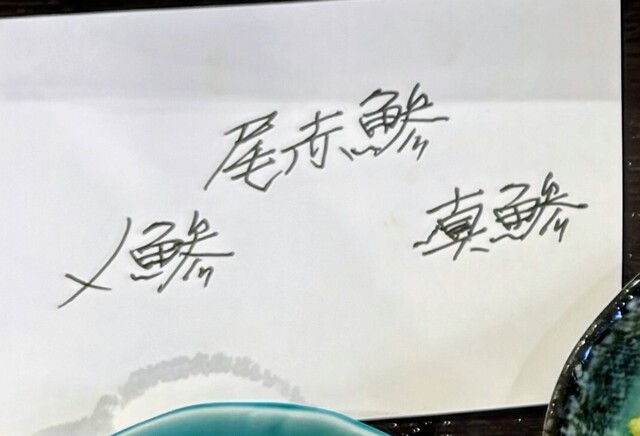 尾赤鯵
真鯵
メ鯵